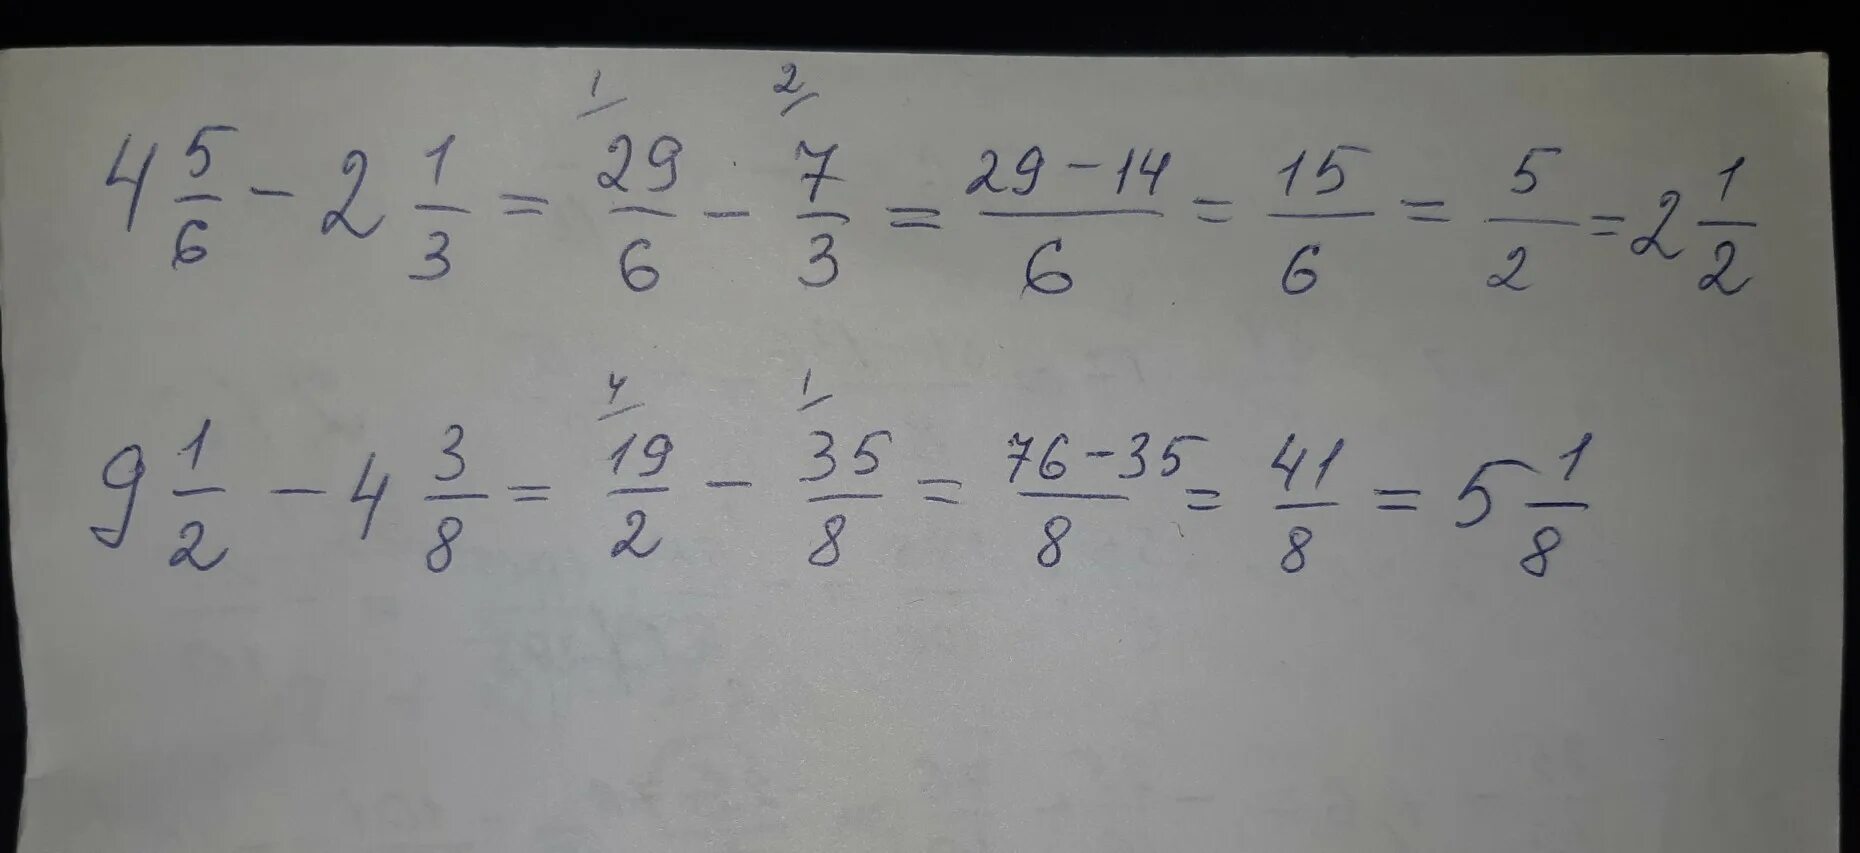 4 5/6 - 2 1/3 = 1/ 29/6 - 2/ 7/3 = (29-14)/6 = 15/6 = 5/2 = 2 1/2
9 1/2 - 4 3/8 = 4/ 19/2 - 1/ 35/8 = (76-35)/8 = 41/8 = 5 1/8